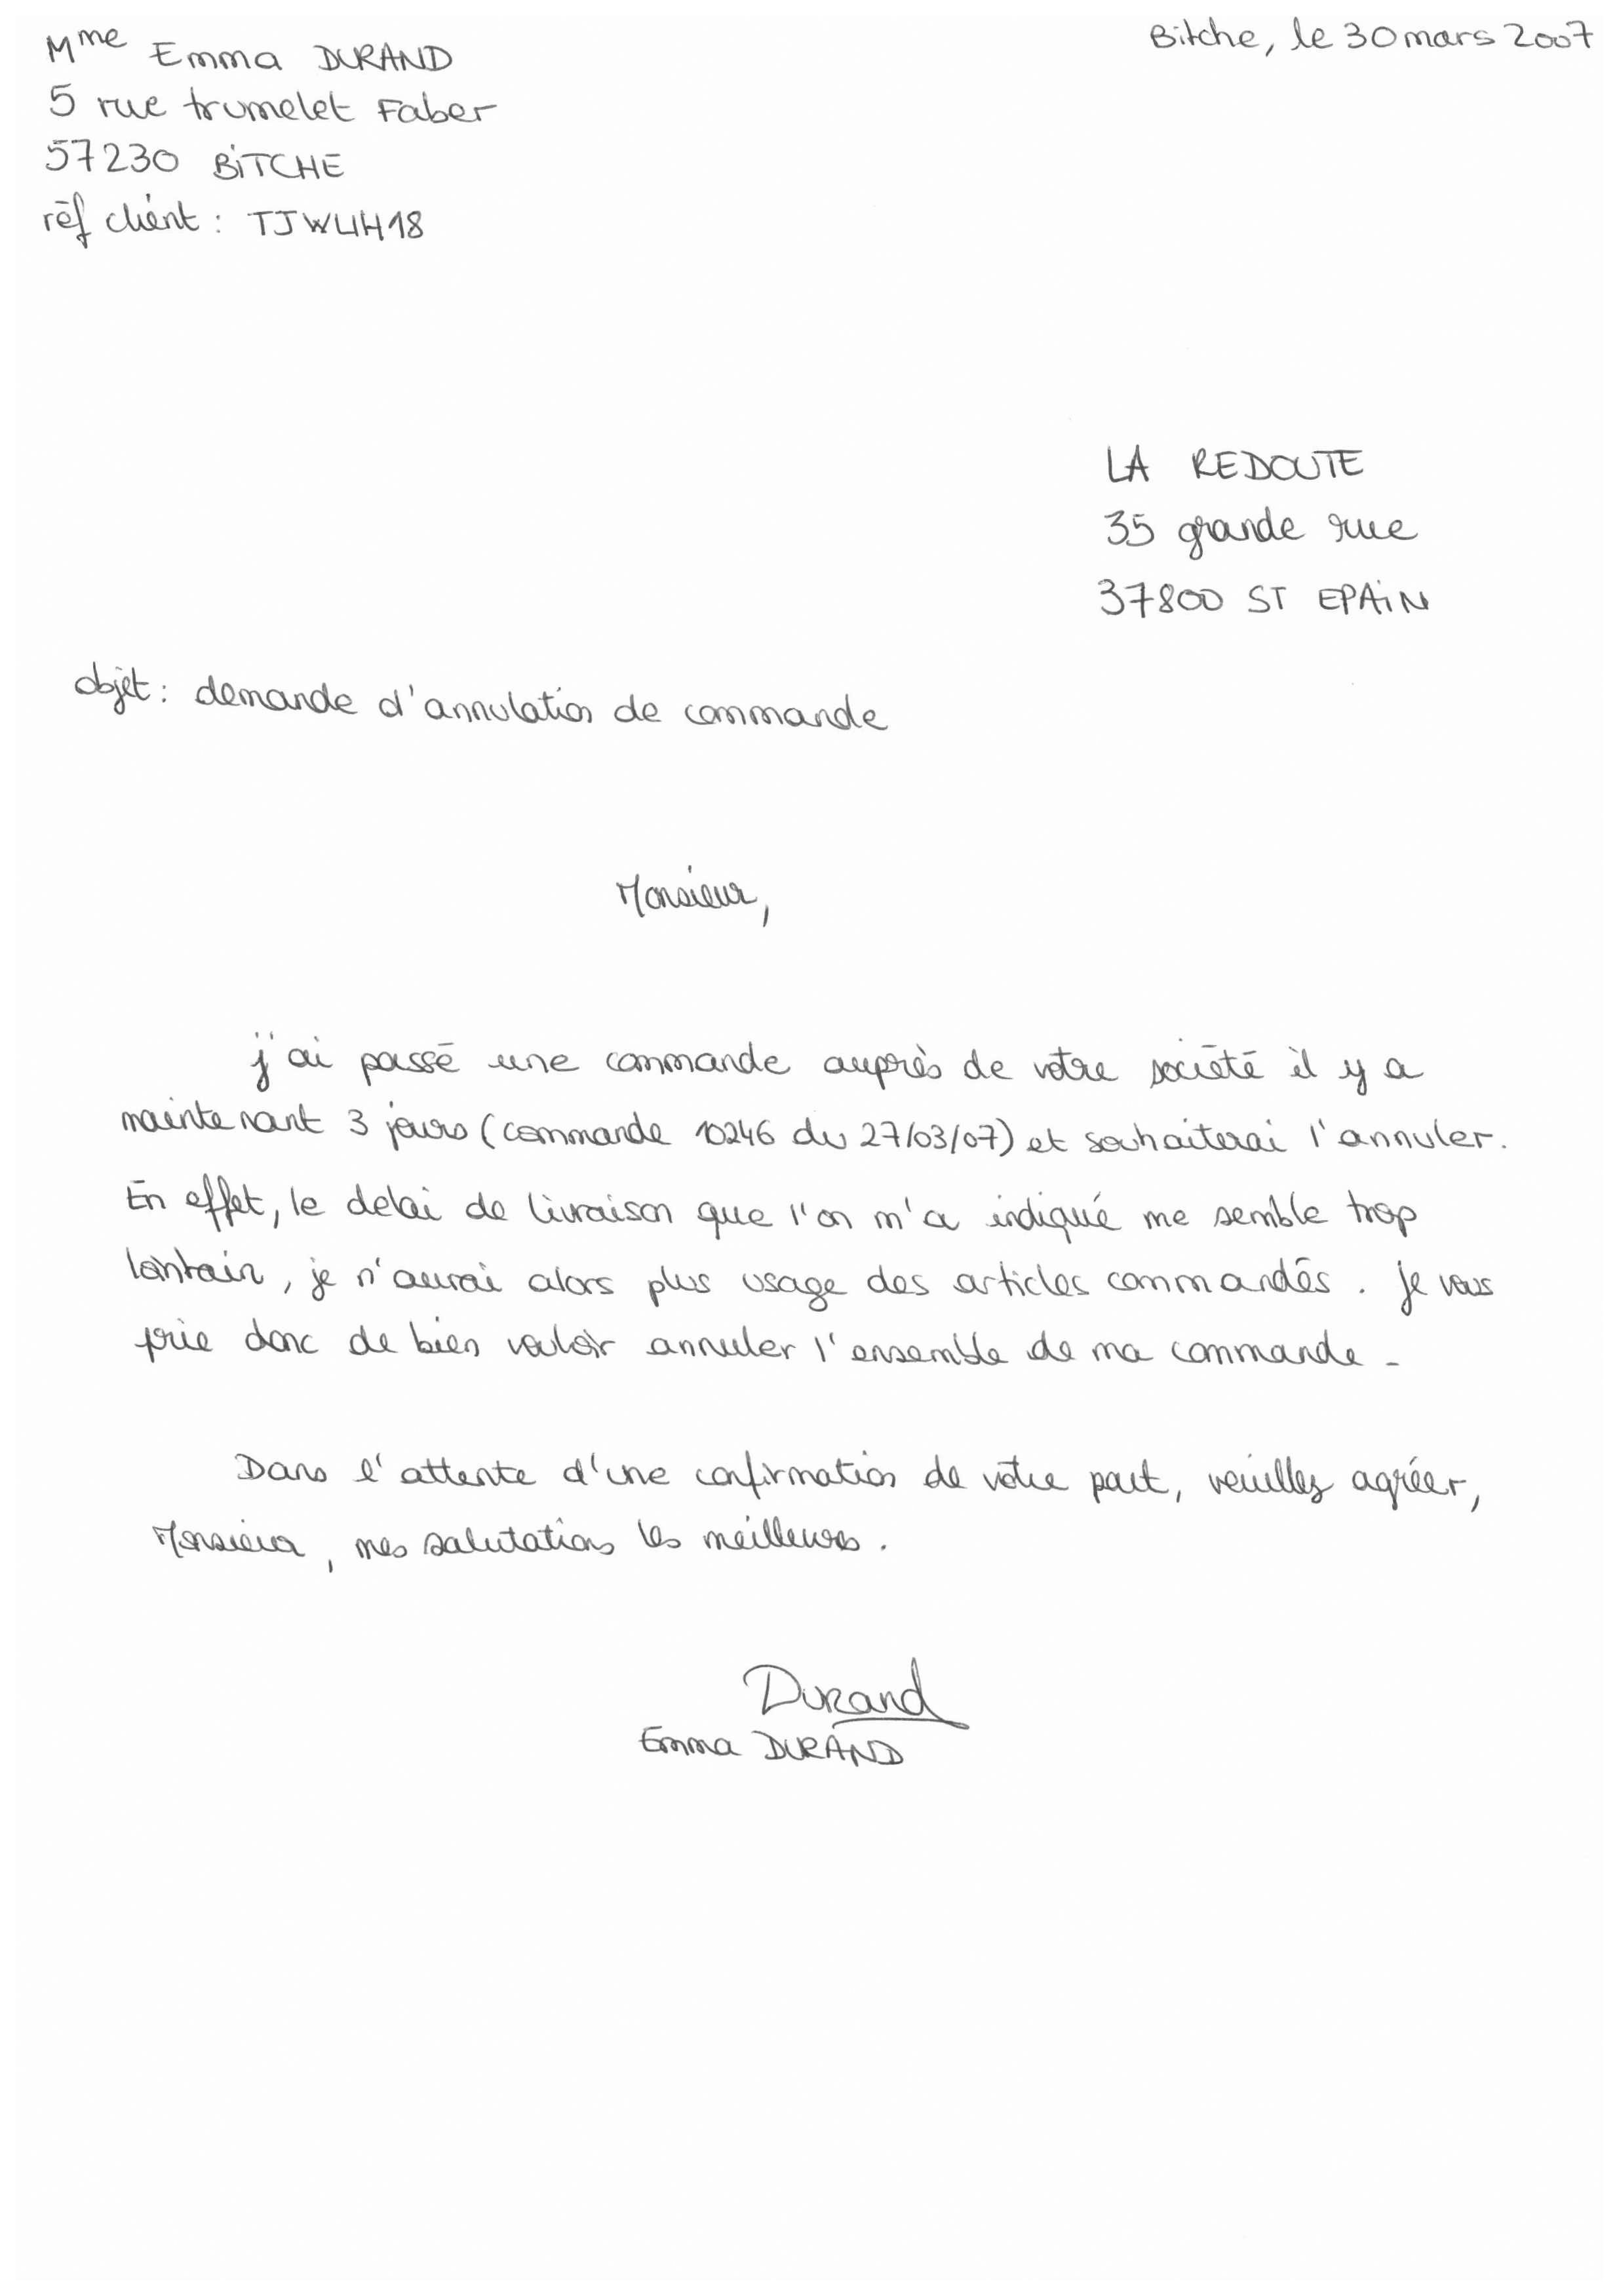 Mme Emma DURAND
Bitche, le 30 mars 2007
5 rue trumelet Faber
57230 BITCHE
réf client : TJWUH18
LA REDOUTE
35 grande rue
37800 ST EPAIN
objet : demande d'annulation de commande
Monsieur,
j'ai passé une commande auprès de votre société il y a
maintenant 3 jours (commande 10246 du 27/03/07) et souhaiterai l'annuler.
En effet, le délai de livraison que l'on m'a indiqué me semble trop
lointain, je n'aurai alors plus usage des articles commandés. je vous
prie donc de bien vouloir annuler l'ensemble de ma commande.
Dans l'attente d'une confirmation de votre part, veuillez agréer,
Monsieur, mes salutations les meilleures.
Durand
Emma DURAND